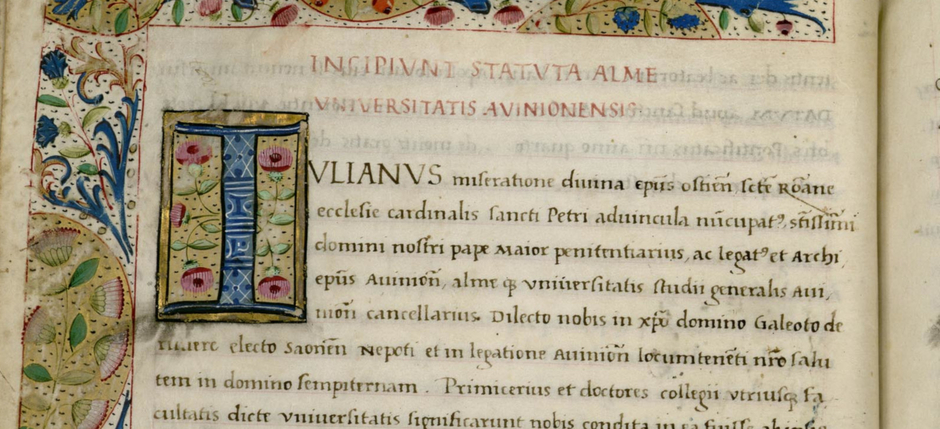 INCIPIUNT STATVTA ALME
VNIVERSITATIS AVINIONENSIS.
IVLIANVS miseratione diuina ep̄us ostien̄ sc̄te Rōane
ecclesie cardinalis sancti Petri aduincula nūcupatꝰ, sc̄tissimi
domini nostri pape Maior penitentiarius, ac legatꝰ et Archi
ep̄us Auinion̄, alme qꝫ vniuersitatis studii generalis Aui,
nion̄ cancellarius. Dilecto nobis in xp̄o domino Galeoto de
ruuere electo Saonen̄ Nepoti et in legatione Auinion̄ locumtenēti nr̄o salu
tem in domino sempiternam. Primicerius et doctores collegii vtriusqꝫ fa
cultatis dicte vniuersitatis significarunt nobis condita